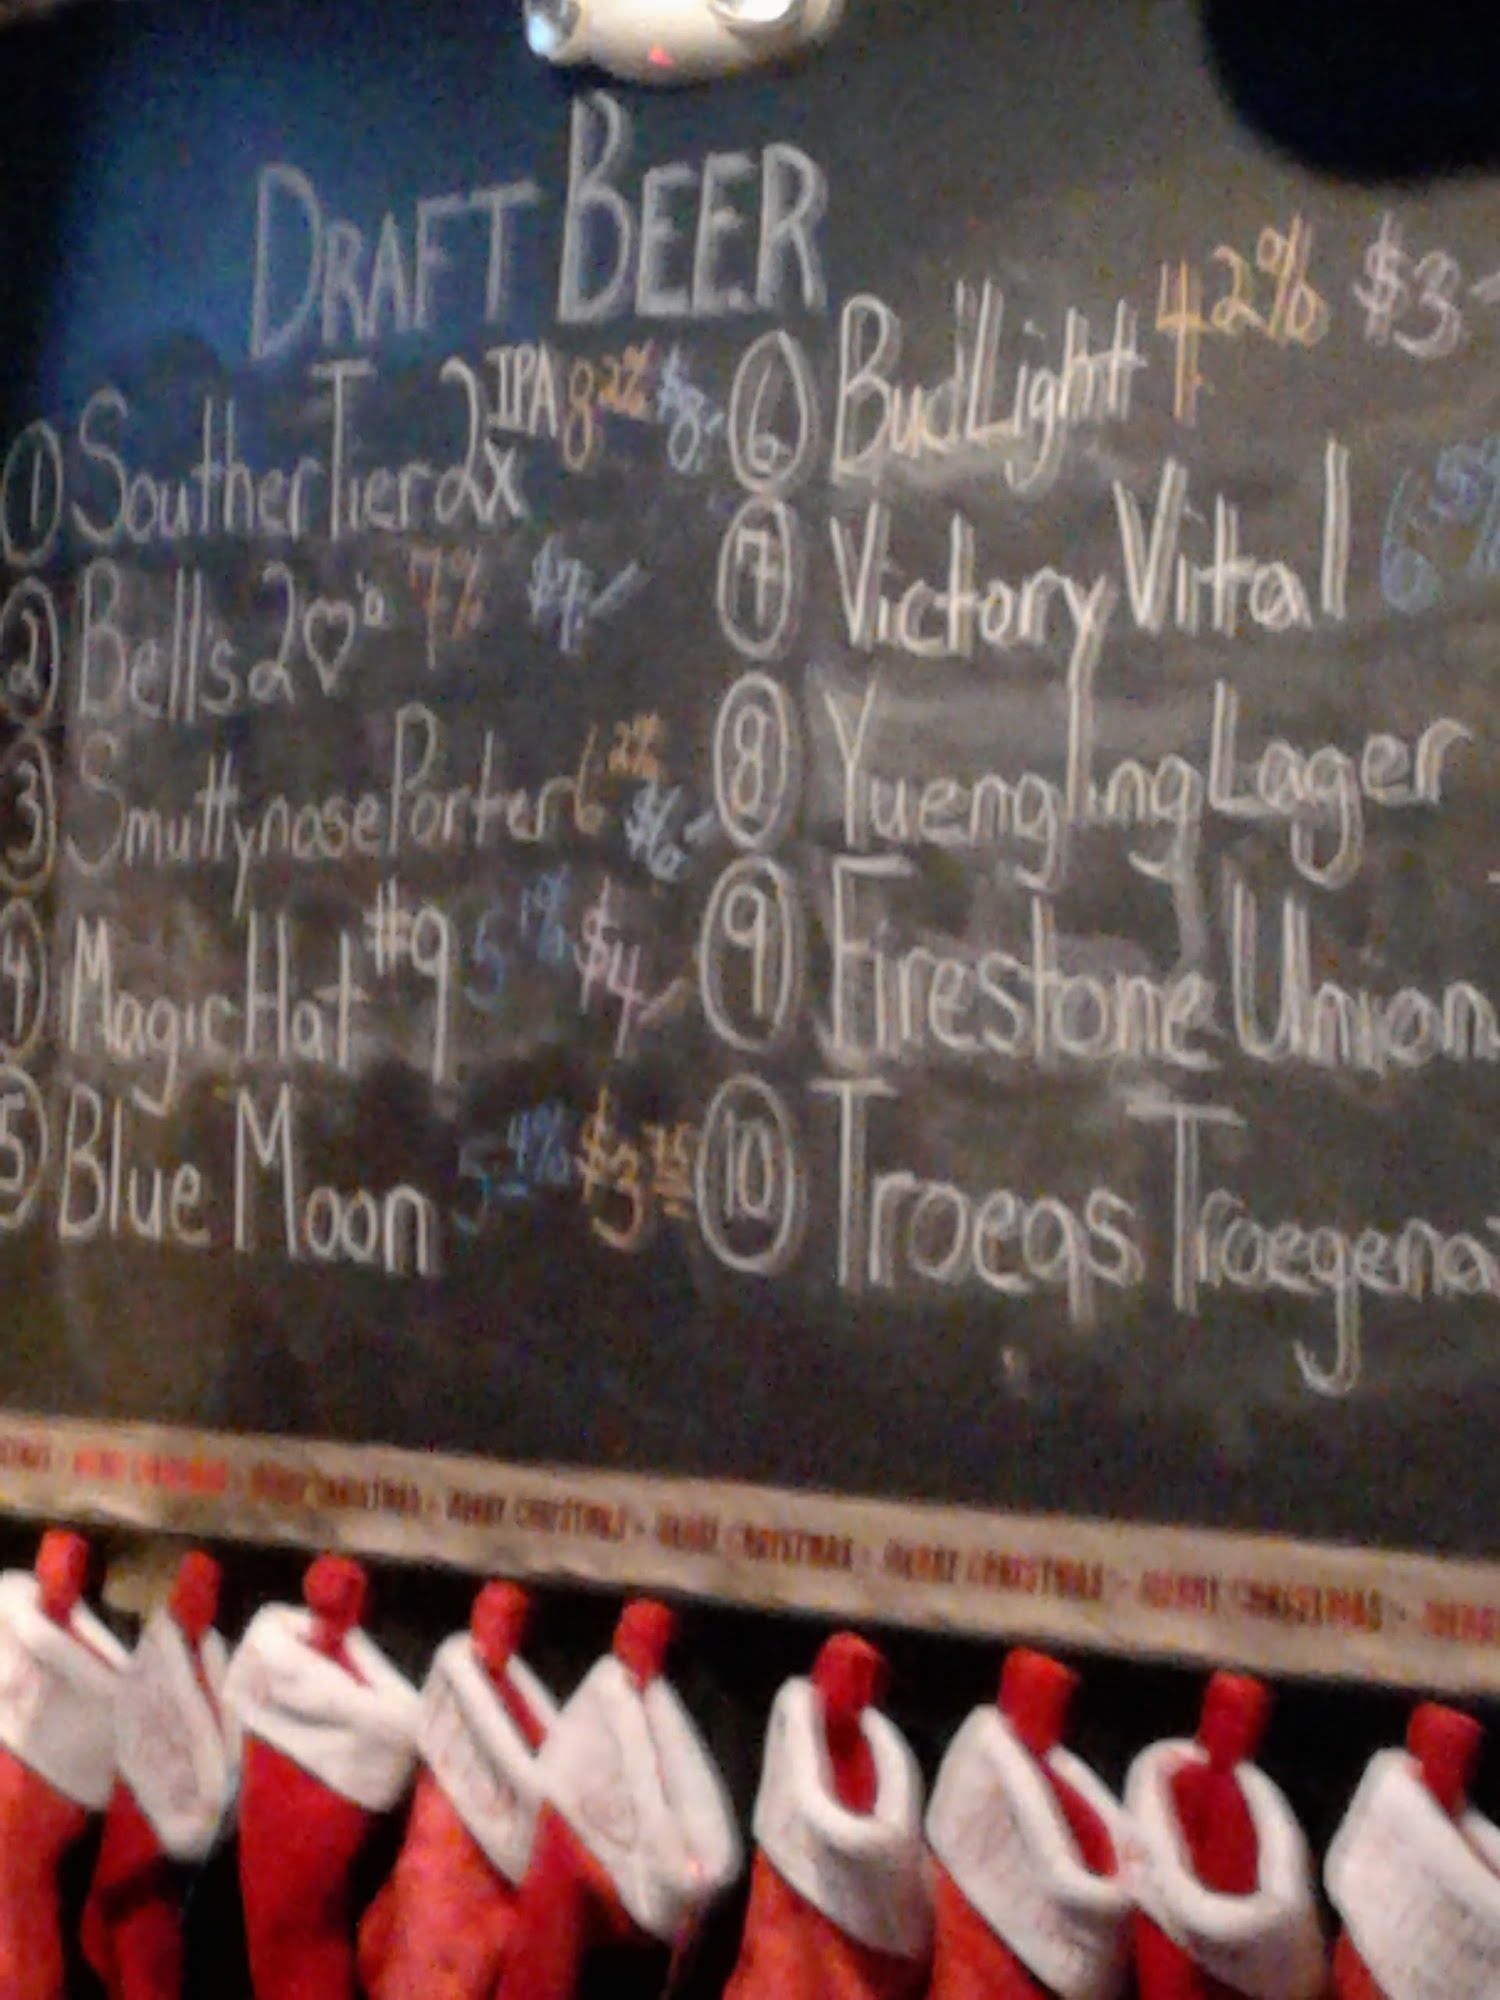 DRAFT BEER
① Souther Tier 2x IPA 8.2% $8-
② Bell's 2♡'d 7% $7-
③ Smuttynose Porter 6.2% $6-
④ Magic Hat #9 5.1% $4-
⑤ Blue Moon 5.4% $3.75
⑥ Bud Light 4.2% $3-
⑦ Victory Vital 6.5%
⑧ Yuengling Lager
⑨ Firestone Union
⑩ Troegs Troegena
MERRY CHRISTMAS - MERRY CHRISTMAS - MERRY CHRISTMAS - MERRY CHRISTMAS - MERRY CHRISTMAS - MERRY CHRISTMAS